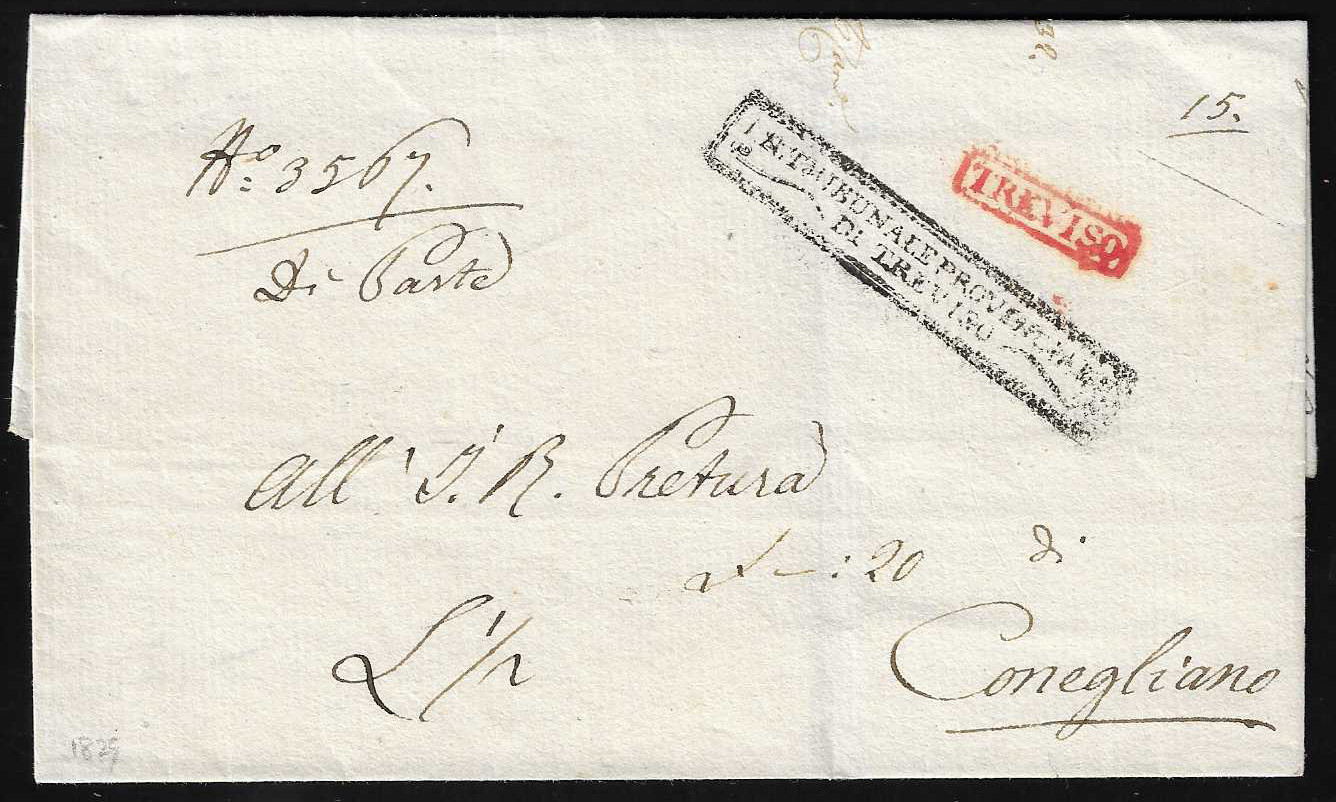 15.
No: 3567.
Di Parte
I. R. TRIBUNALE PROVINCIALE
DI TREVISO
TREVISO
All' I. R. Pretura
di
: 20
Conegliano